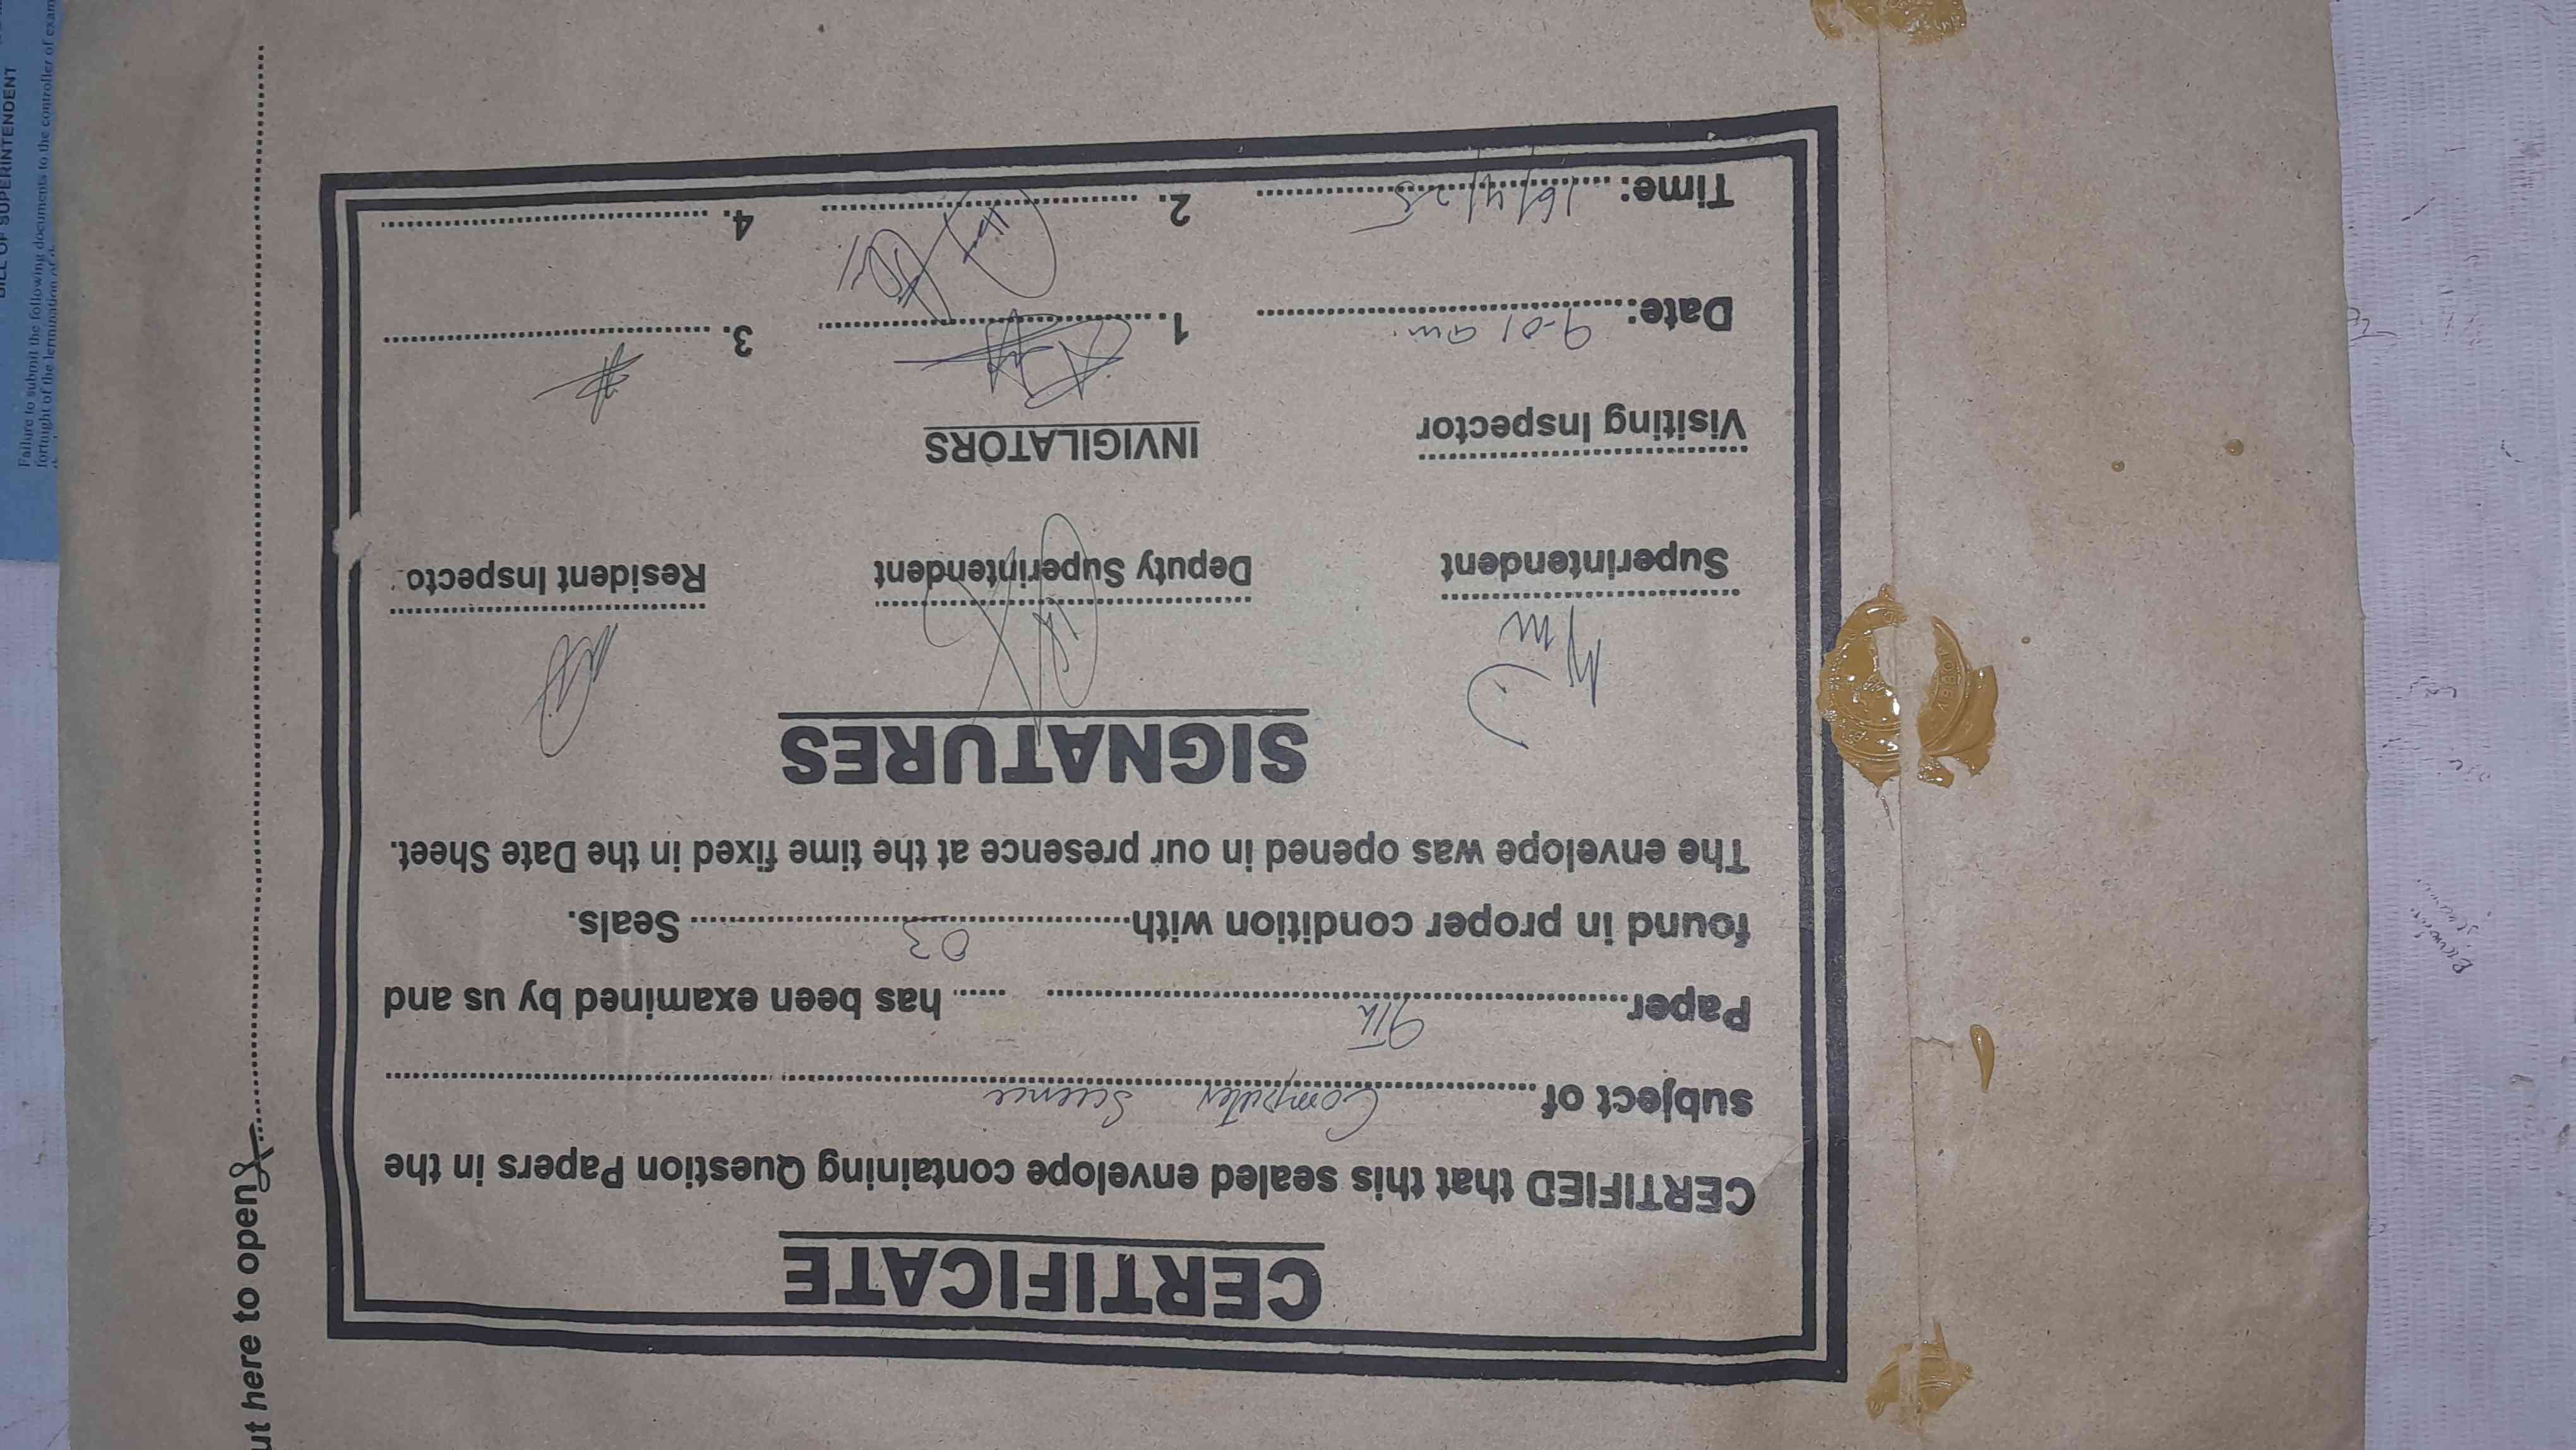 CERTIFICATE
CERTIFIED that this sealed envelope containing Question Papers in the
subject of Computer Science
Paper 9th has been examined by us and
found in proper condition with 03 Seals.
The envelope was opened in our presence at the time fixed in the Date Sheet.
SIGNATURES
Superintendent Deputy Superintendent Resident Inspecto
Visiting Inspector INVIGILATORS
Date: 9-01 am. 1. 3.
Time: 16/4/25 2. 4.
ut here to open
BILL OF SUPERINTENDENT
Failure to submit the following documents to the controller of exam
fortnight of the termination of